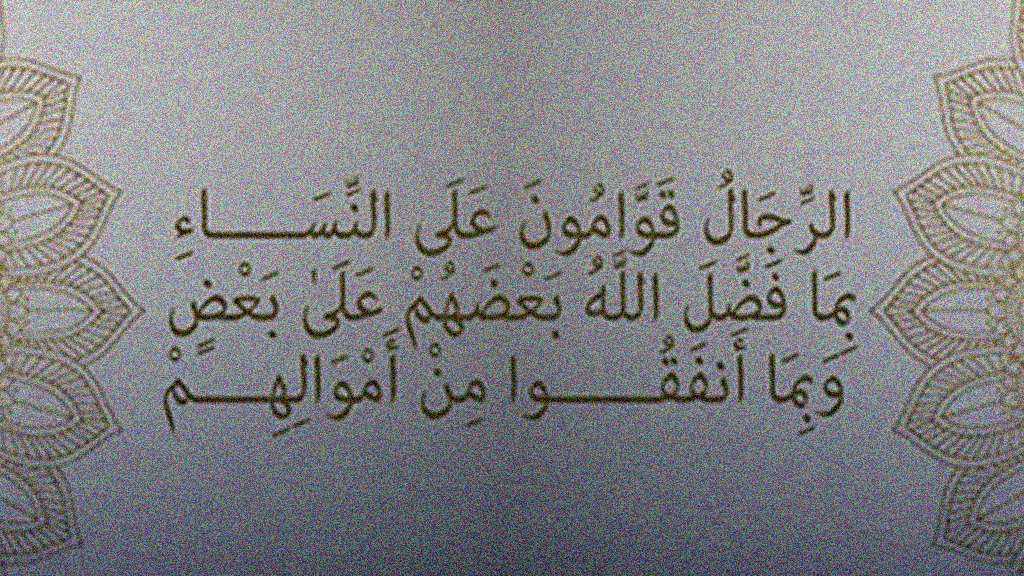 الرِّجَالُ قَوَّامُونَ عَلَى النِّسَـــــاءِ
بِمَا فَضَّلَ اللَّهُ بَعْضَهُمْ عَلَىٰ بَعْضٍ
وَبِمَا أَنفَقُـــــوا مِنْ أَمْوَالِهِـــمْ